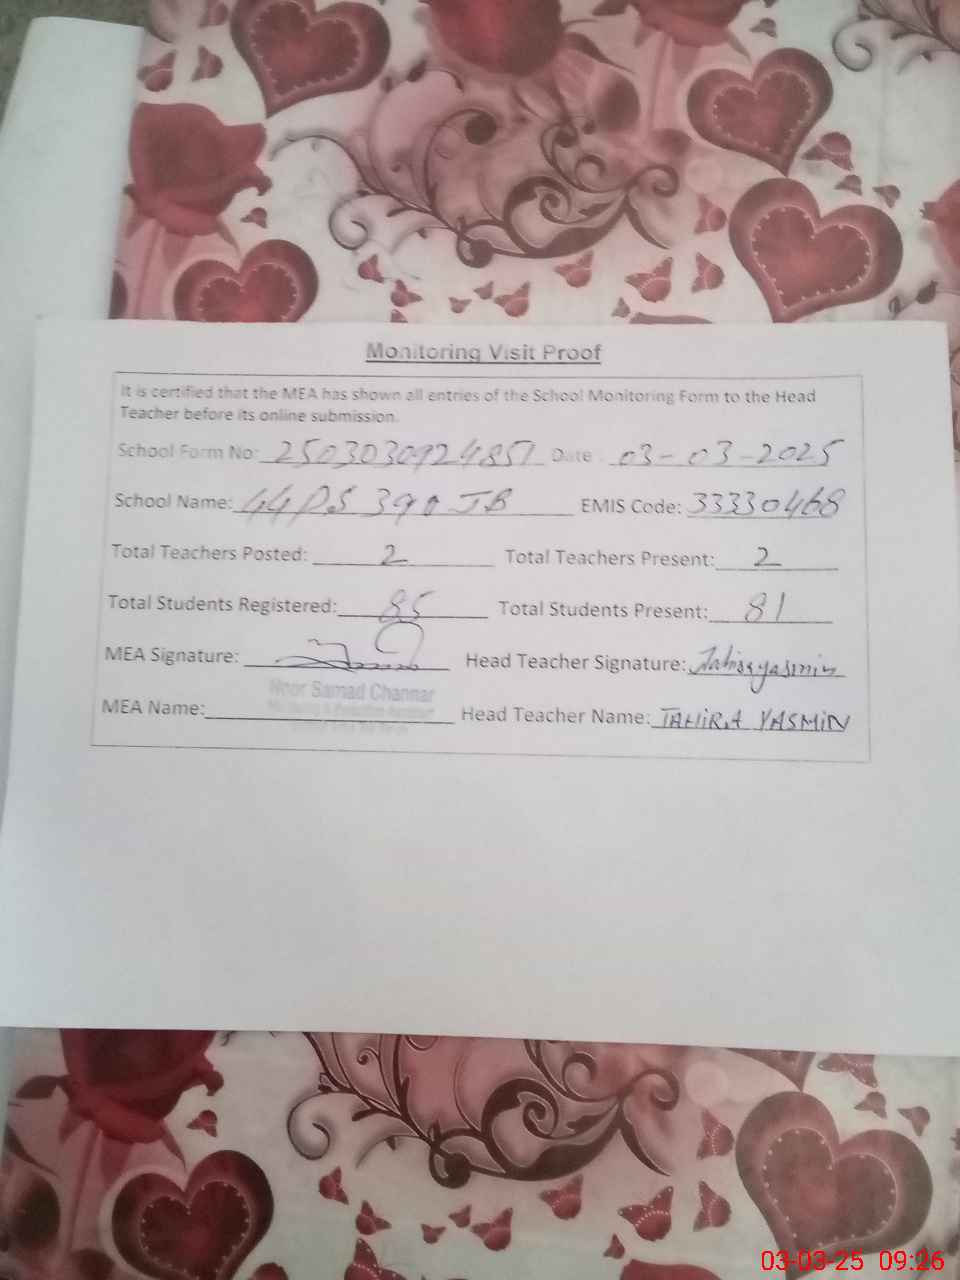 Monitoring Visit Proof
It is certified that the MEA has shown all entries of the School Monitoring Form to the Head
Teacher before its online submission.
School Form No: 2503030924851 Date: 03-03-2025
School Name: GGPS 390 JB EMIS Code: 33330468
Total Teachers Posted: 2 Total Teachers Present: 2
Total Students Registered: 85 Total Students Present: 81
MEA Signature: Head Teacher Signature: Tahira yasmin
Noor Samad Channar
MEA Name: Head Teacher Name: TAHIRA YASMIN
03-03-25 09:26